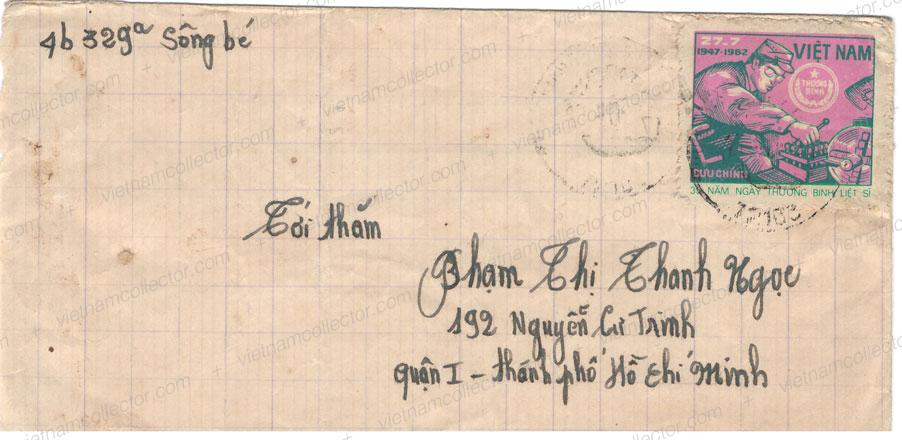 4b 329a Sông bé
27.7
1947-1982
VIỆT NAM
THƯƠNG BINH
BƯU CHÍNH
35 NĂM NGÀY THƯƠNG BINH LIỆT SĨ
Tới thăm
Phạm Thị Thanh Ngọc
192 Nguyễn Cư Trinh
quận I - thành phố Hồ Chí Minh
vietnamcollector.com